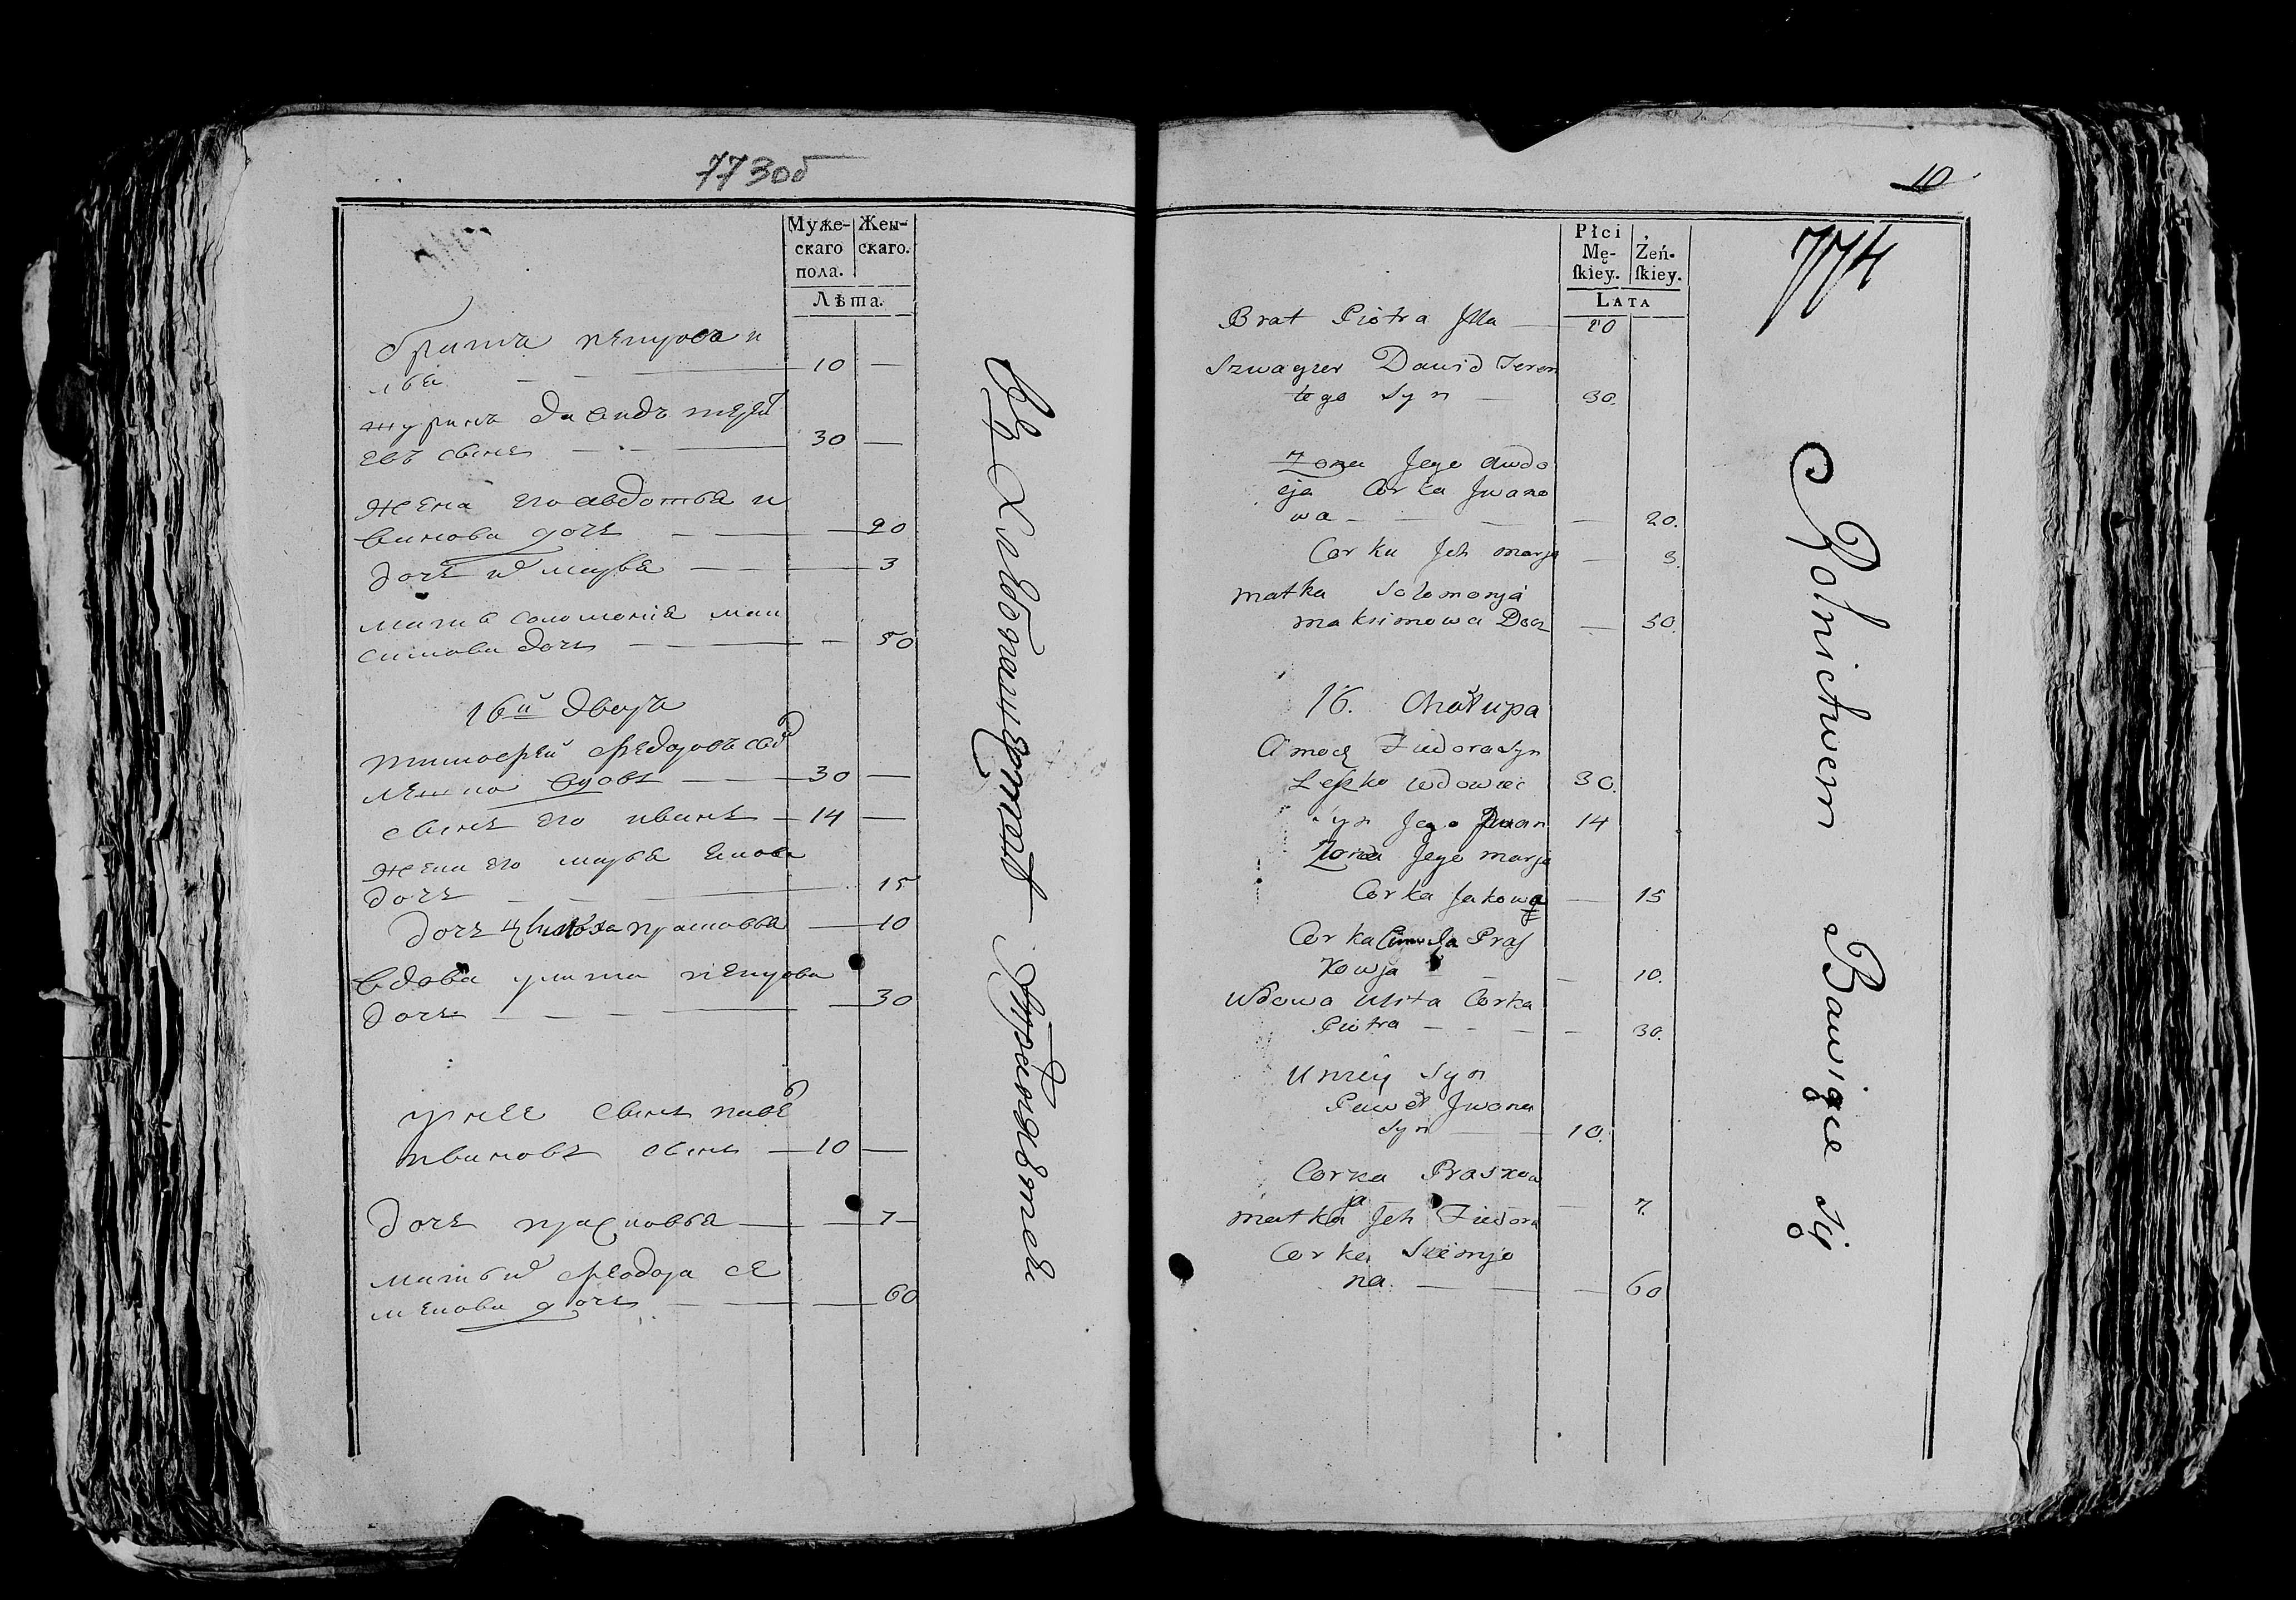 773об
Муже-
скаго
пола.
Жен-
скаго.
Лѣта.
братъ петрова и
лья 10
журинъ давидъ терен
евъ сынъ 30
жена его авдотья и
ванова дочь 20
дочь их марья 3
мать соломонія мак
симова дочь 50
16й дворъ
тимофей федоровъ сынъ
вдовъ 30
сынъ его иванъ 14
жена его марья якова
дочь 15
дочь прасковья 10
вдова улита петрова
дочь 30
у нее сынъ павел
ивановъ сынъ 10
дочь прасковья 7
мать их феодора се
менова дочь 60
10
774
Płci
Mę-
ſkiey.
Żeń-
ſkiey.
LATA
Brat Piotra Jlla 10
Szwagier Dawid Teren
tego Syn 30.
Zona Jego Awdo
eja Corka Jwano
wa 20.
Corka Jch marja 3.
matka Solomonja
maksimowa Docz 50.
16. Chałupa
Fiedora Syn
Leszko wdowiec 30.
Syn Jego Jwan 14
Zona Jego marja
Corka Jakowa 15
Corka Pras
kowja 10.
Wdowa Ulita Corka
Piotra 30.
U niey Syn
Paweł Jwana
Syn 10.
Corka Praskow
ja 7.
matka Jch Fiedora
Corka Siemjo
na 60
Rolnictwem Bawiące Się